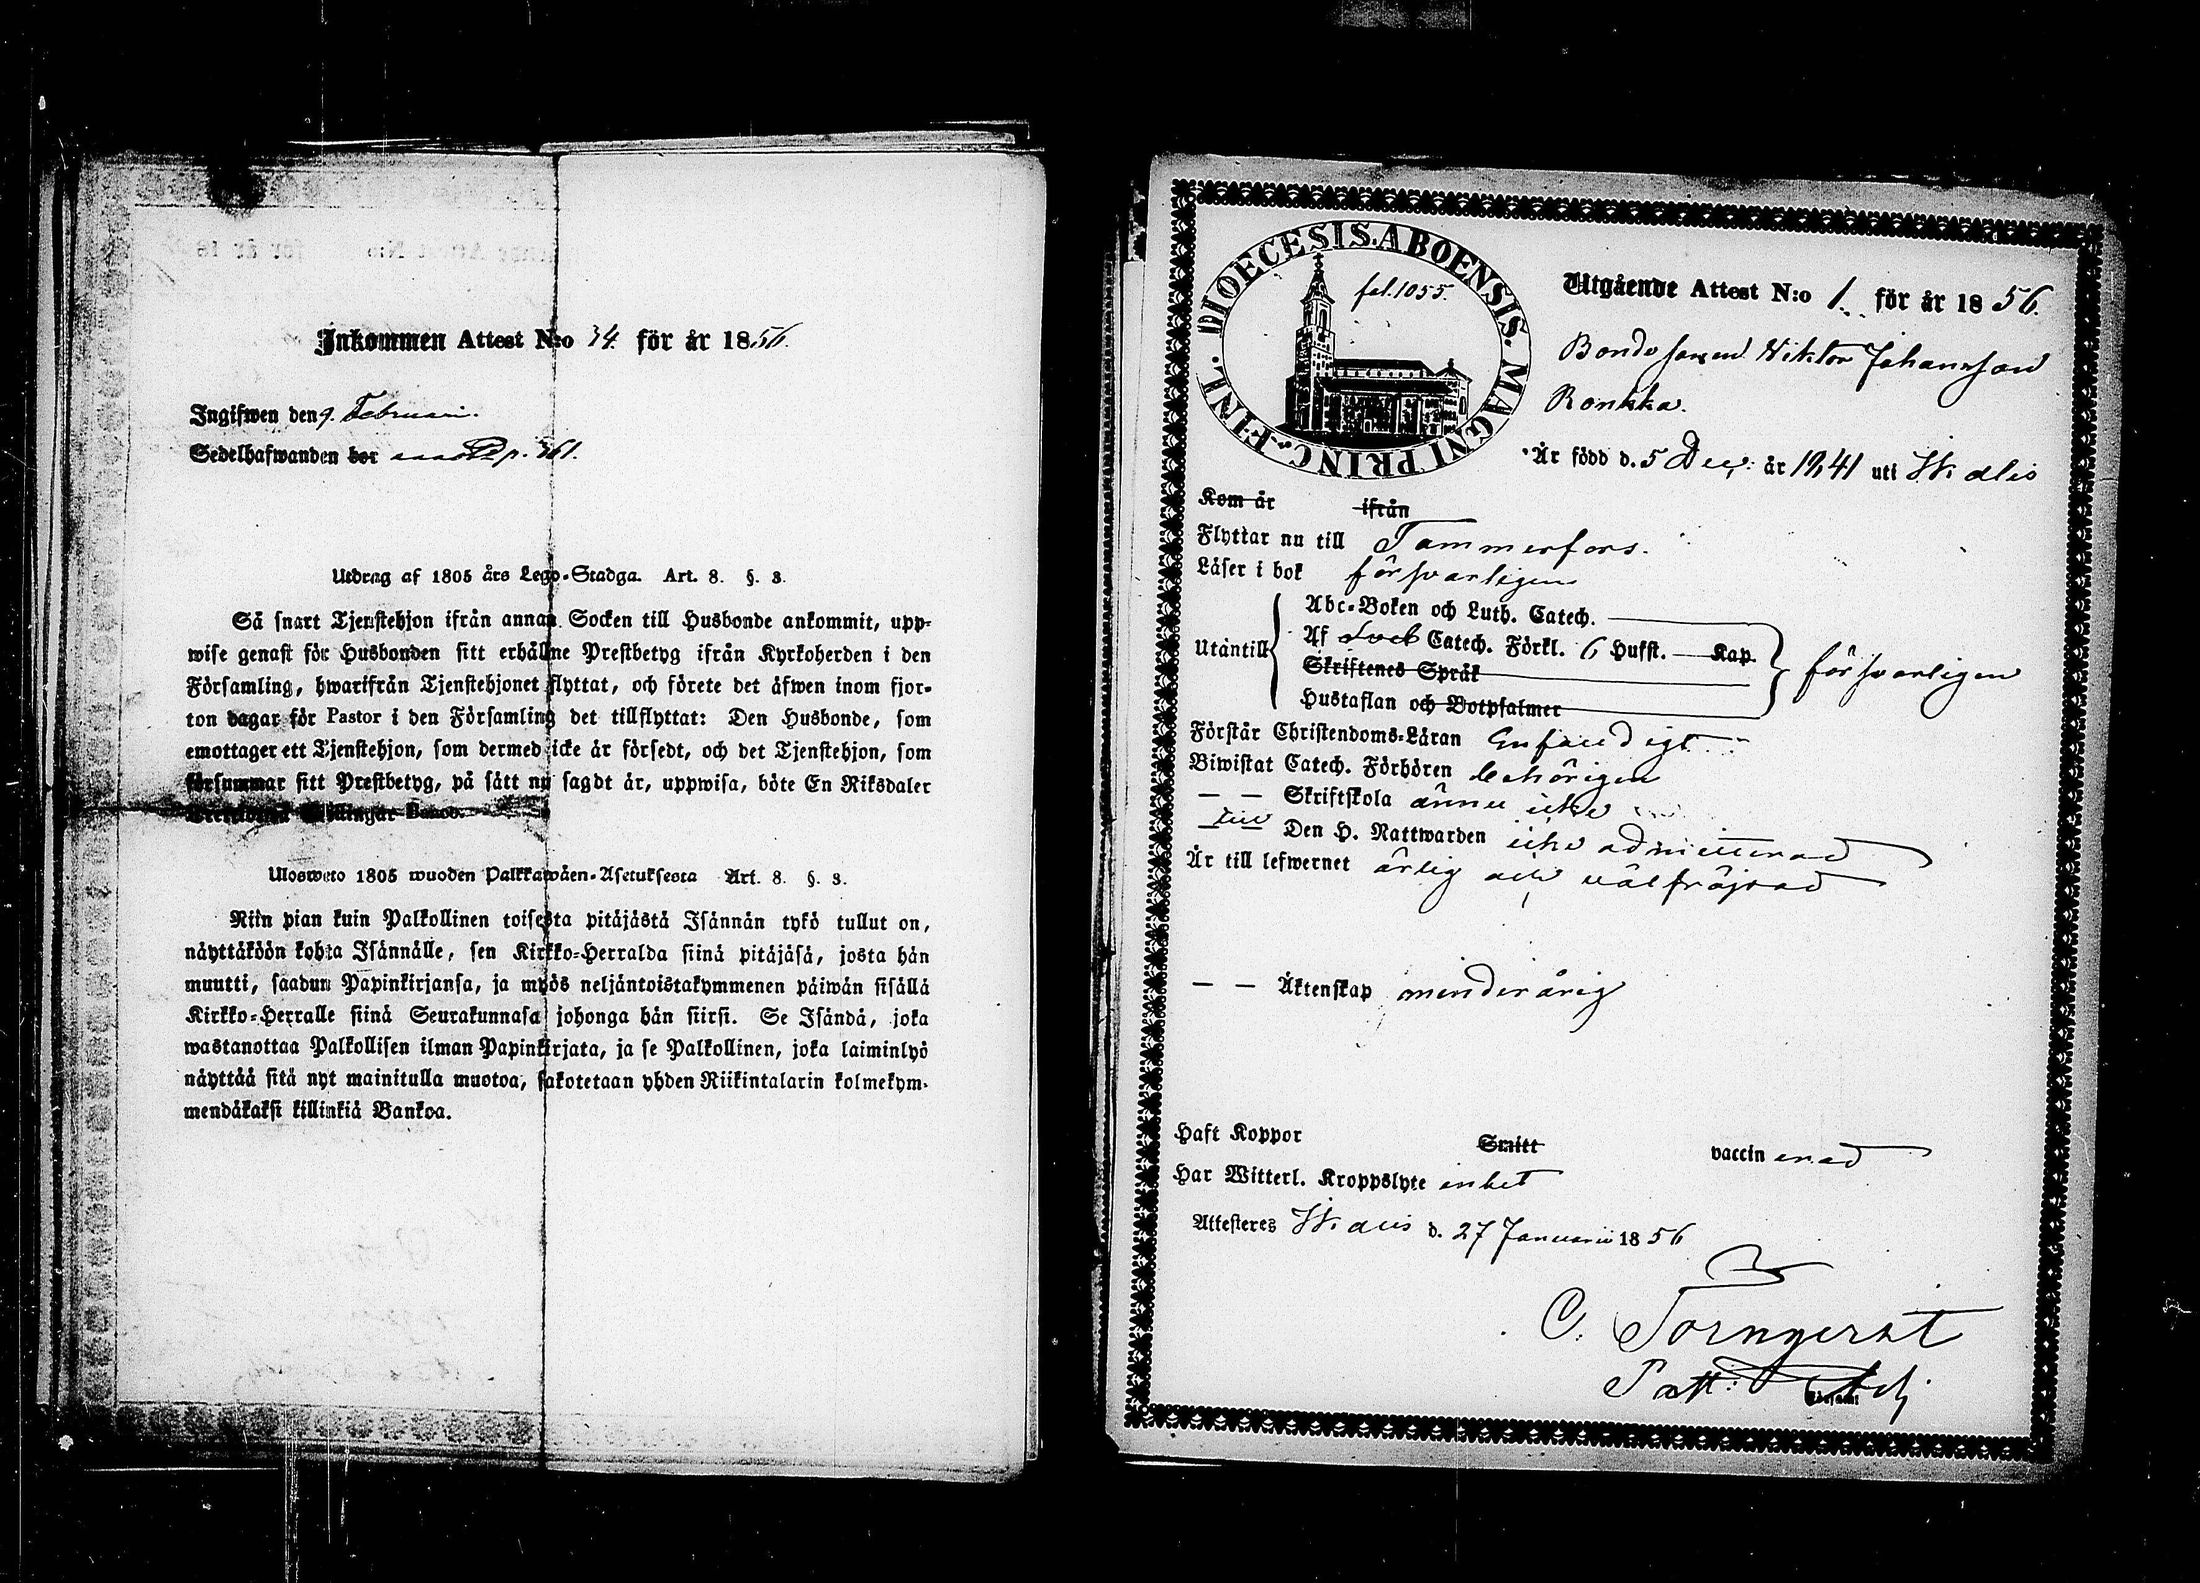 Inkommen Attest N:o 34. för år 1856.
Ingifwen den 9. Februari.
Sedelhafwanden bor p. 361.
Utdrag af 1805 års Lego-Stadga. Art. 8. §. 3.
Så snart Tjenstehjon ifrån annan Socken till Husbonde ankommit, upp-
wise genast för Husbonden sitt erhållne Prestbetyg ifrån Kyrkoherden i den
Församling, hwarifrån Tjenstehjonet flyttat, och förete det äfwen inom fjor-
ton dagar för Pastor i den Församling det tillflyttat: Den Husbonde, som
emottager ett Tjenstehjon, som dermed icke är försedt, och det Tjenstehjon, som
försummar sitt Prestbetyg, på sätt nu sagdt är, uppwisa, böte En Riksdaler
Banco.
Ulosweto 1805 wuoden Palkkawäen-Asetuksesta Art. 8. §. 3.
Niin pian kuin Palkollinen toisesta pitäjästä Isännän tykö tullut on,
näyttäköön kohta Isännälle, sen Kirkko-Herralda siinä pitäjäsä, josta hän
muutti, saadun Papinkirjansa, ja myös neljäntoistakymmenen päiwän sisällä
Kirkko-Herralle siinä Seurakunnasa johonga hän siirsi. Se Isändä, joka
wastanottaa Palkollisen ilman Papinkirjata, ja se Palkollinen, joka laiminlyö
näyttää sitä nyt mainitulla muotoa, sakotetaan yhden Riikintalarin kolmekym-
mendäkaksi killinkiä Bankoa.
DIOECESIS. ABOENSIS. MAGNI PRINC. FINL.
fol. 1055.
Utgående Attest N:o 1. för år 1856.
Bondesonen Wiktor Johansson
Ronkka.
Är född d. 5 Dec. år 1841 uti Ikalis
Kom år ifrån
Flyttar nu till Tammerfors.
Läser i bok försvarligen
Utantill Abc-Boken och Luth. Catech.
Af Catech. Förkl. 6 Hufst. Kap.
Skriftenes Språk
Hustaflan och Botpsalmer
försvarligen
Förstår Christendoms-Läran Enfaldigt
Biwistat Catech. Förhören behörigen
— — Skriftskola ännu icke
— — Den H. Nattwarden icke admitterad
Är till lefwernet ärlig och välfräjdad
— — Äktenskap minderårig
Haft Koppor Smitt vaccinerad
Har Witterl. Kroppslyte intet
Attesteres Ikalis d. 27 Januarii 1856
C. Tornqvist
Past: Adj